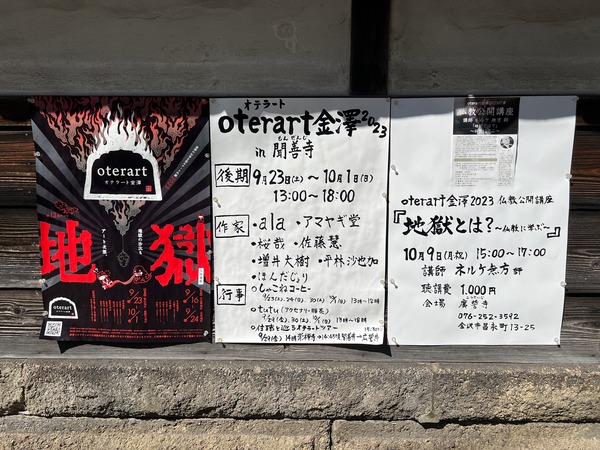 oterart
オテラート金澤
地獄
9/23
10/1
9/16
9/24
oterart
オテラート
oterart金澤2023
in 聞善寺
もんぜんじ
後期 9月23日(土)〜10月1日(日)
13:00〜18:00
作家 ・ala ・アマヤギ堂
・桜哉 ・佐藤慧
・増井大樹 ・平林沙也加
・ほんだじょり
行事 ◦しゃこねコーヒー
◦tutu(アクセサリー販売)
◦住職と巡るオテラートツアー
仏教公開講座
oterart金澤2023 仏教公開講座
『地獄とは?〜仏教に学ぶ〜』
10月9日(月・祝) 15:00〜17:00
講師 ネルケ無方師
聴講料 1,000円
会場 廣誓寺
076-252-3592
金沢市昌永町13-25